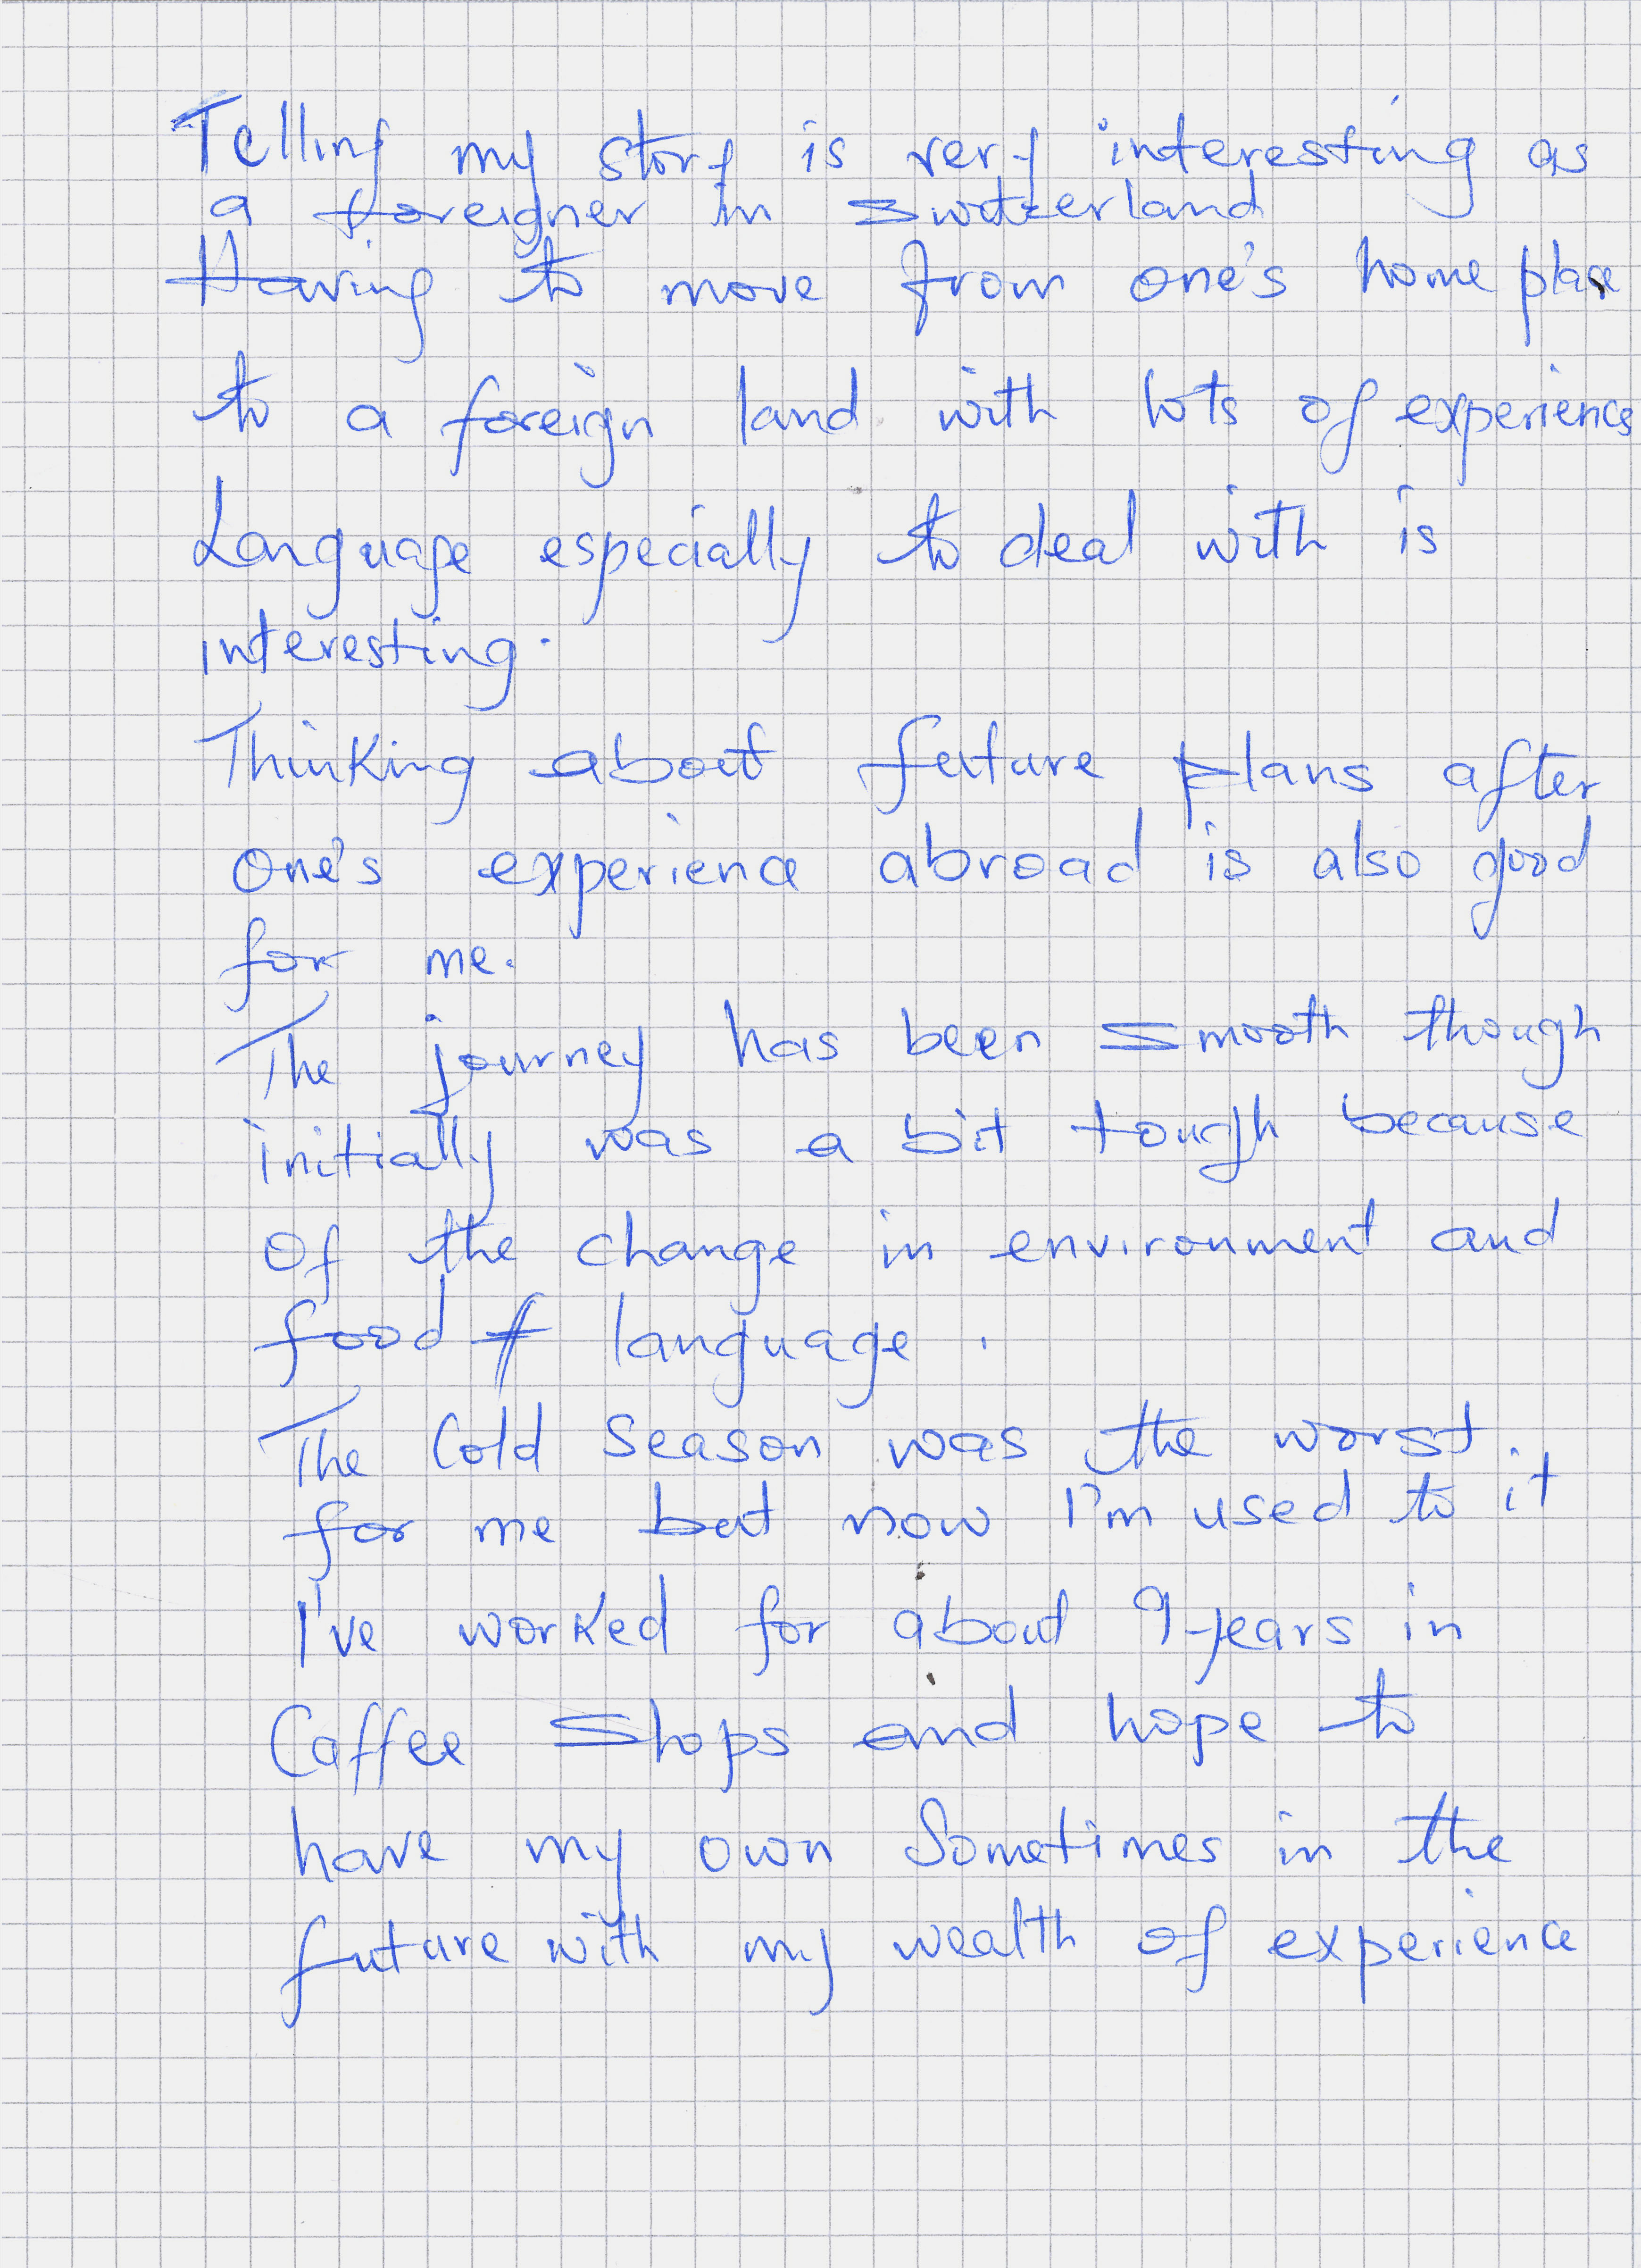 Telling my story is very interesting as
a foreigner in Switzerland
Having to move from one's home place
to a foreign land with lots of experiences
Language especially to deal with is
interesting.
Thinking about future plans after
one's experience abroad is also good
for me.
The journey has been smooth though
initially was a bit tough because
of the change in environment and
food & language.
The Cold Season was the worst.
for me but now I'm used to it
I've worked for about 9 years in
Caffee shops and hope to
have my own Sometimes in the
future with my wealth of experience